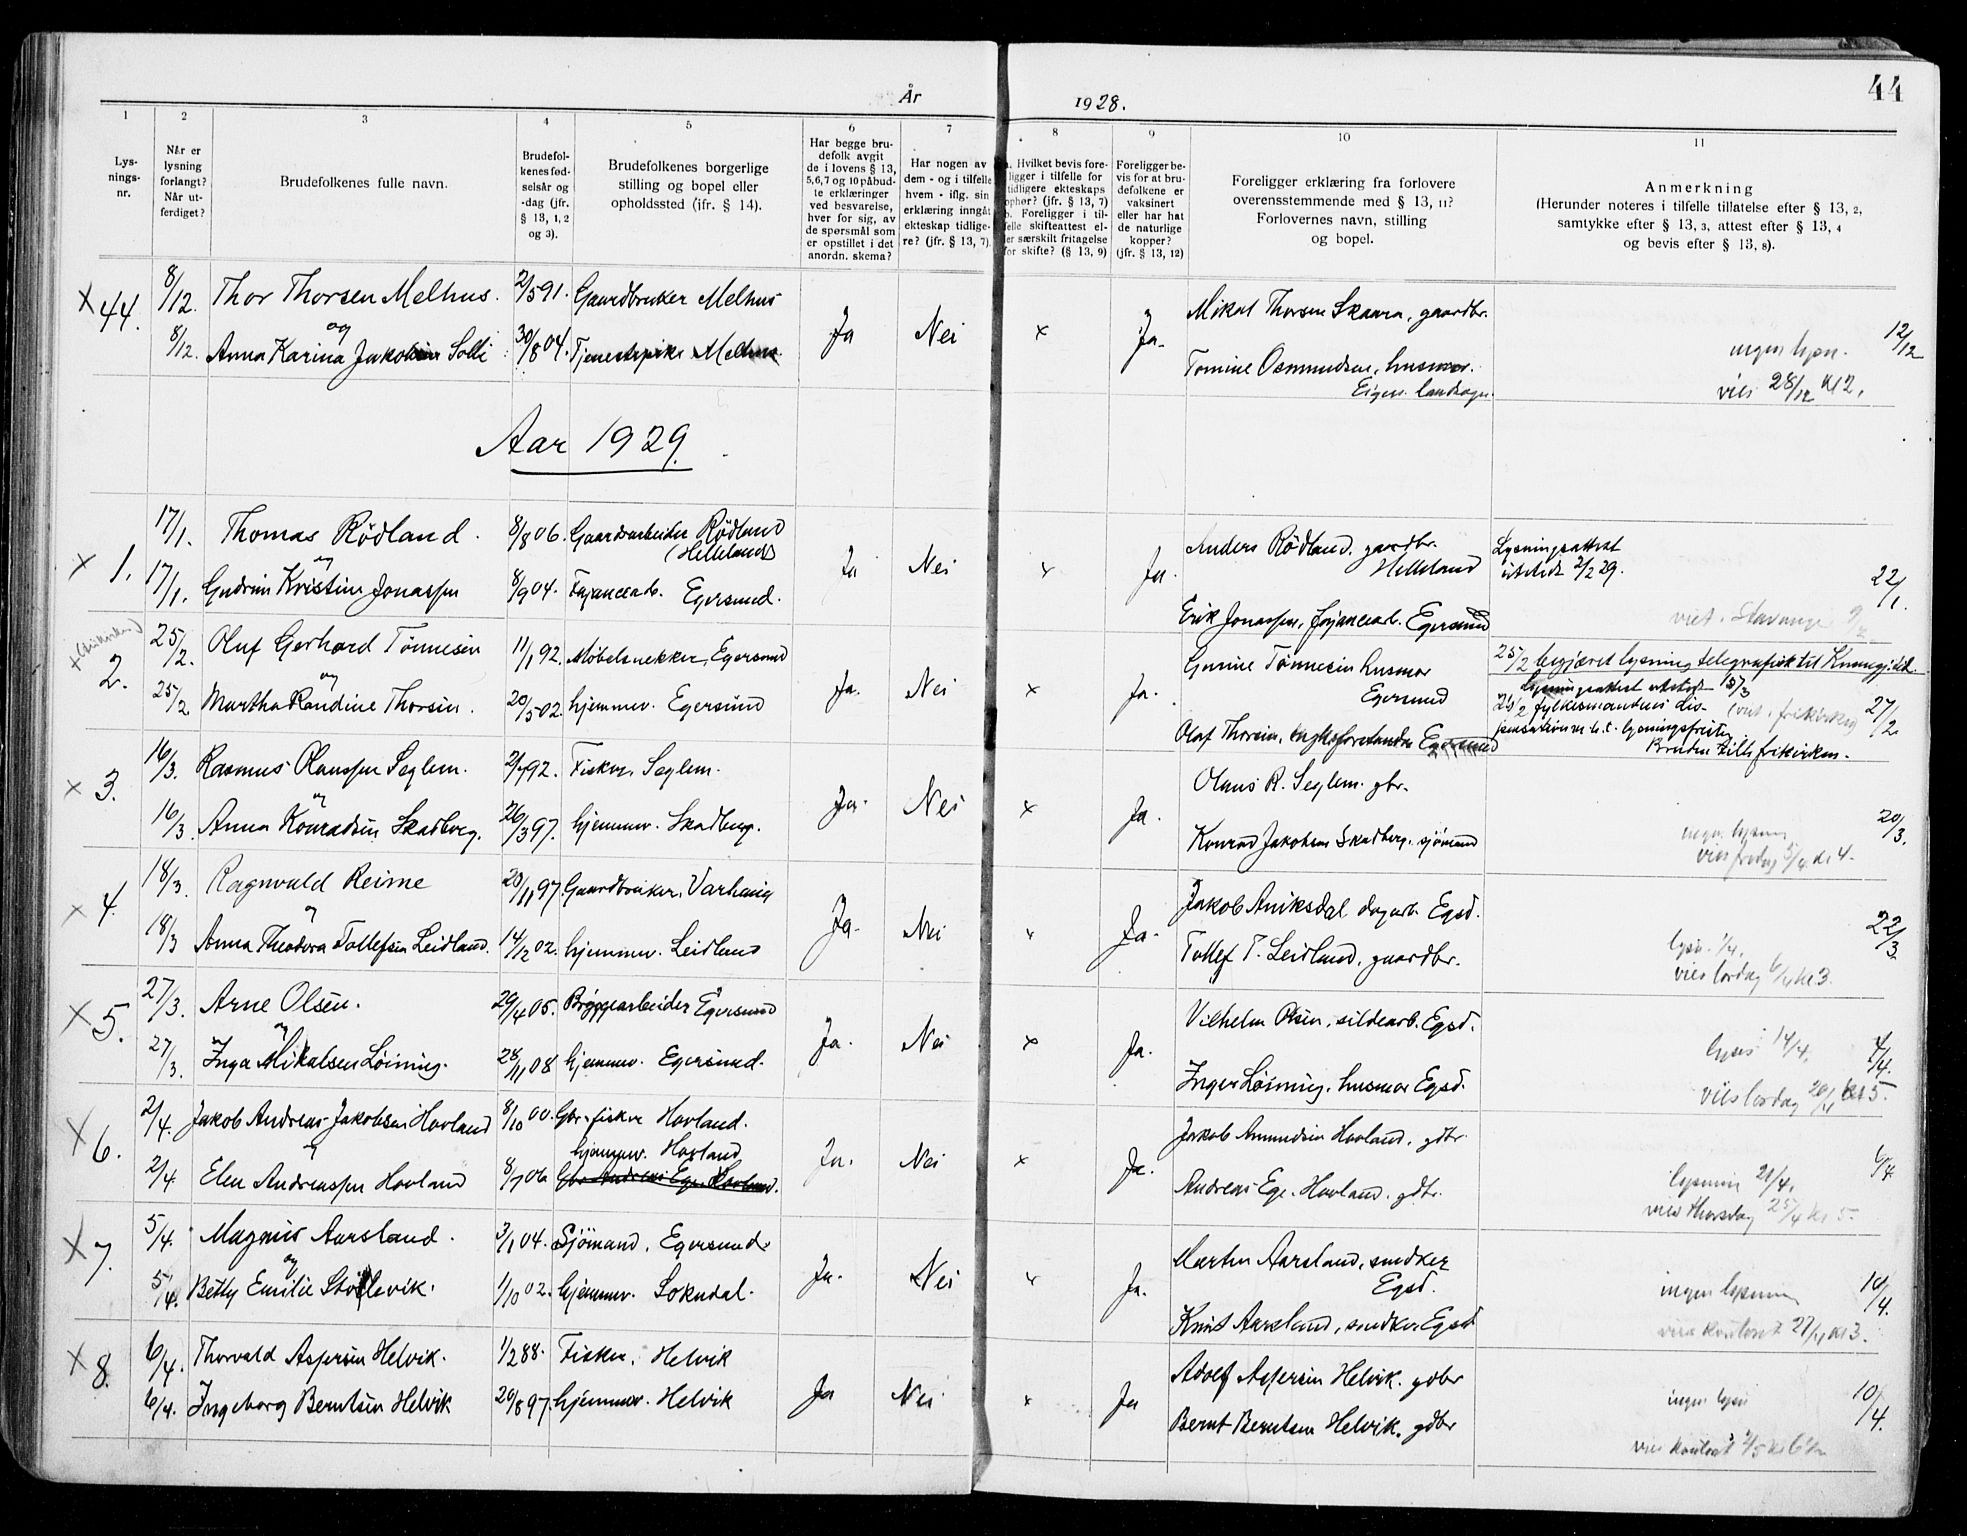 44
År 1928.
1 2 3 4 5 6 7 8 9 10 11
Lys-
nings-
nr.
Når er
lysning
forlangt?
Når ut-
ferdiget?
Brudefolkenes fulle navn.
Brudefol-
kenes fød-
selsår og
-dag (jfr.
§ 13, 1, 2
og 3).
Brudefolkenes borgerlige
stilling og bopel eller
opholdssted (ifr. § 14).
Har begge bru-
defolk avgit
de i lovens § 13,
5,6,7 og 10 påbud-
te erklæringer
ved besvarelse,
hver for sig, av
de spørsmål som
er opstillet i det
anordn. skema?
Har nogen av
dem - og i tilfelle
hvem - iflg. sin
erklæring inngåt
ekteskap tidlige-
re? (jfr. § 13, 7).
a. Hvilket bevis fore-
ligger i tilfelle for
tidligere ekteskaps
ophør? (jfr. § 13, 7)
b. Foreligger i til-
felle skifteattest el-
ler særskilt fritagelse
for skifte? (§ 13, 9)
Foreligger be-
vis for at bru-
defolkene er
vaksinert
eller har hat
de naturlige
kopper?
(jfr. § 13, 12)
Foreligger erklæring fra forlovere
overensstemmende med § 13, 11?
Forlovernes navn, stilling
og bopel.
Anmerkning
(Herunder noteres i tilfelle tillatelse efter § 13, 2,
samtykke efter § 13, 3, attest efter § 13, 4
og bevis efter § 13, 8).
x 44. 8/12. Thor Thorsen Melhus. 2/5 91. Gaardbruker Melhus
og
8/12. Anna Karina Jakobsen Solli 30/8 04. Tjenestepike Melhus.
Ja Nei x Ja.
Mikal Thorsen Skaara, gaardbr.
Tomine Osmundsen, husmor.
Eigers. landsogn.
ingen lysn. 12/12
vies 28/12 kl 2.
Aar 1929.
x 1. 17/1. Thomas Rödland. 8/8 06. Gaardsarbeider Rödland
(Helleland)
og
17/1. Gudrun Kristine Jonassen 8/9 04. Fajancearb. Egersund.
Ja Nei x Ja.
Anders Rödland, gaardbr.
Helleland
Erik Jonassen, fajancearb. Egersund
Lysningsattest
utstedt 2/2 29.
22/1.
viet i Stavanger
x (frikirken)
2. 25/2. Oluf Gerhard Tönnesen 11/1 92. Møbelsnekker, Egersund
og
25/2 Martha Randine Thorsen. 20/5 02. hjemmev. Egersund
Ja. Nei x Ja.
Gurine Tönnesen husmor
Egersund
Olaf Thorsen, Egersund
25/2 begjæret lysning telegrafisk til
Lysningsattest utstedt 5/3
fylkesmandens dis-
pensation m. h. t. lysningsfristen
(viet i frikirken)
Bruden tilh. frikirken.
27/2
x 3. 16/3. Rasmus Olaussen Seglem. 2/7 92. Fisker, Seglem.
og
16/3. Anna Konradsen Skadberg. 26/3 97. hjemmev. Skadberg.
Ja. Nei x Ja.
Olaus R. Seglem. gbr.
Konrad Jakobsen Skadberg, sjömand
ingen lysning 20/3.
vies fredag 5/4 kl 4.
x 4. 18/3. Ragnvald Reime 20/11 97. Gaardbruker, Varhaug
og
18/3 Anna Theodora Tollefsen Leidland. 14/2 02. hjemmev. Leidland
Ja. Nei x Ja.
Jakob Aniksdal dagarb. Egsd.
Tollef T. Leidland, gaardbr.
lysn. 1/4. 22/3.
vies lørdag 6/4 kl 3.
x 5. 27/3. Arne Olsen. 29/4 05. Bryggearbeider Egersund
og
27/3. Inga Mikalsen Löining. 28/11 08 hjemmev. Egersund.
Ja. Nei x Ja.
Vilhelm Olsen, sildearb. Egsd.
Inger Löining, husmor Egsd.
lysn 14/4. 4/4.
vies lørdag 20/4 kl 5.
x 6. 2/4. Jakob Andreas Jakobsen Hovland 8/10 00. Gbr.-fisker Hovland.
og
2/4. Elen Andreassen Hovland 8/7 06 hjemmev. Hovland
Gbr Andreas Ege. Hovland.
Ja. Nei x Ja.
Jakob Amundsen Hovland, gdbr.
Andreas Ege. Hovland. gdbr.
lysning 21/4. 6/4
vies Thorsdag 25/4 kl 5.
x 7. 5/4. Magnus Aarsland. 3/1 04. Sjömand, Egersund.
og
5/4. Betty Emilie Stölevik. 1/10 02. hjemmev. Sokndal.
Ja. Nei x Ja.
Martin Aarsland, snedker
Egsd.
Knut Aarsland, snedker Egsd
ingen lysning 10/4.
vies kontoret 27/4 kl 3.
x 8. 6/4. Thorvald Aspersen Helvik. 1/2 88. Fisker, Helvik
6/4. Ingeborg Berntsen Helvik 20/8 97. hjemmev. Helvik
Ja Nei x Ja
Adolf Aspersen Helvik. gdbr
Bernt Berntsen Helvik. gdbr
ingen lysn 10/4.
vies kontoret
Aar 1929.